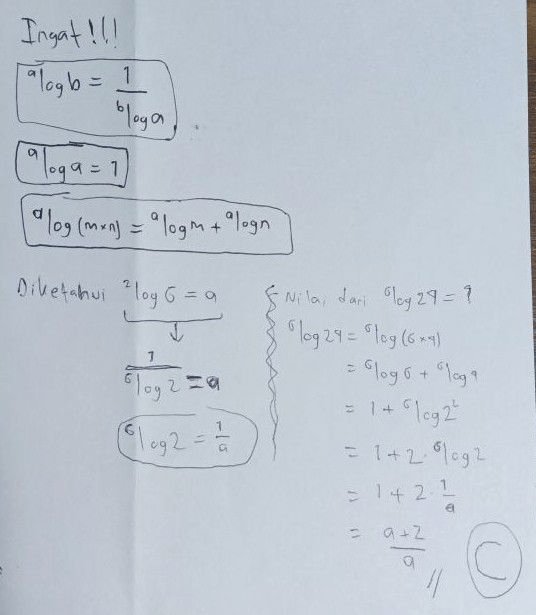 Ingat!!!
ᵃlog b = 1/ᵇlog a
ᵃlog a = 1
ᵃlog (m×n) = ᵃlog m + ᵃlog n
Diketahui ²log 6 = a
↓
1/⁶log 2 = a
⁶log 2 = 1/a
Nilai dari ⁶log 24 = ?
⁶log 24 = ⁶log (6×4)
= ⁶log 6 + ⁶log 4
= 1 + ⁶log 2²
= 1 + 2 · ⁶log 2
= 1 + 2 · 1/a
= a+2/a //
C